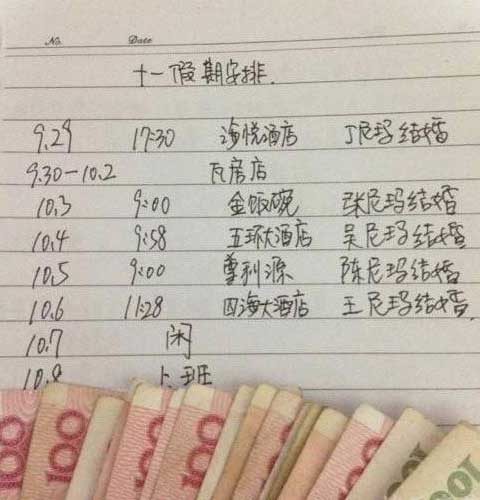 No.	Date
十一假期安排.
9.29	17:30	海悦酒店	丁尼玛结婚
9.30-10.2	瓦房店
10.3	9:00	金饭碗	张尼玛结婚
10.4	9:58	五环大酒店	吴尼玛结婚
10.5	9:00	尊利源	陈尼玛结婚
10.6	11:28	四海大酒店	王尼玛结婚.
10.7	闲
10.8	上班
100 100 100 100 100 100